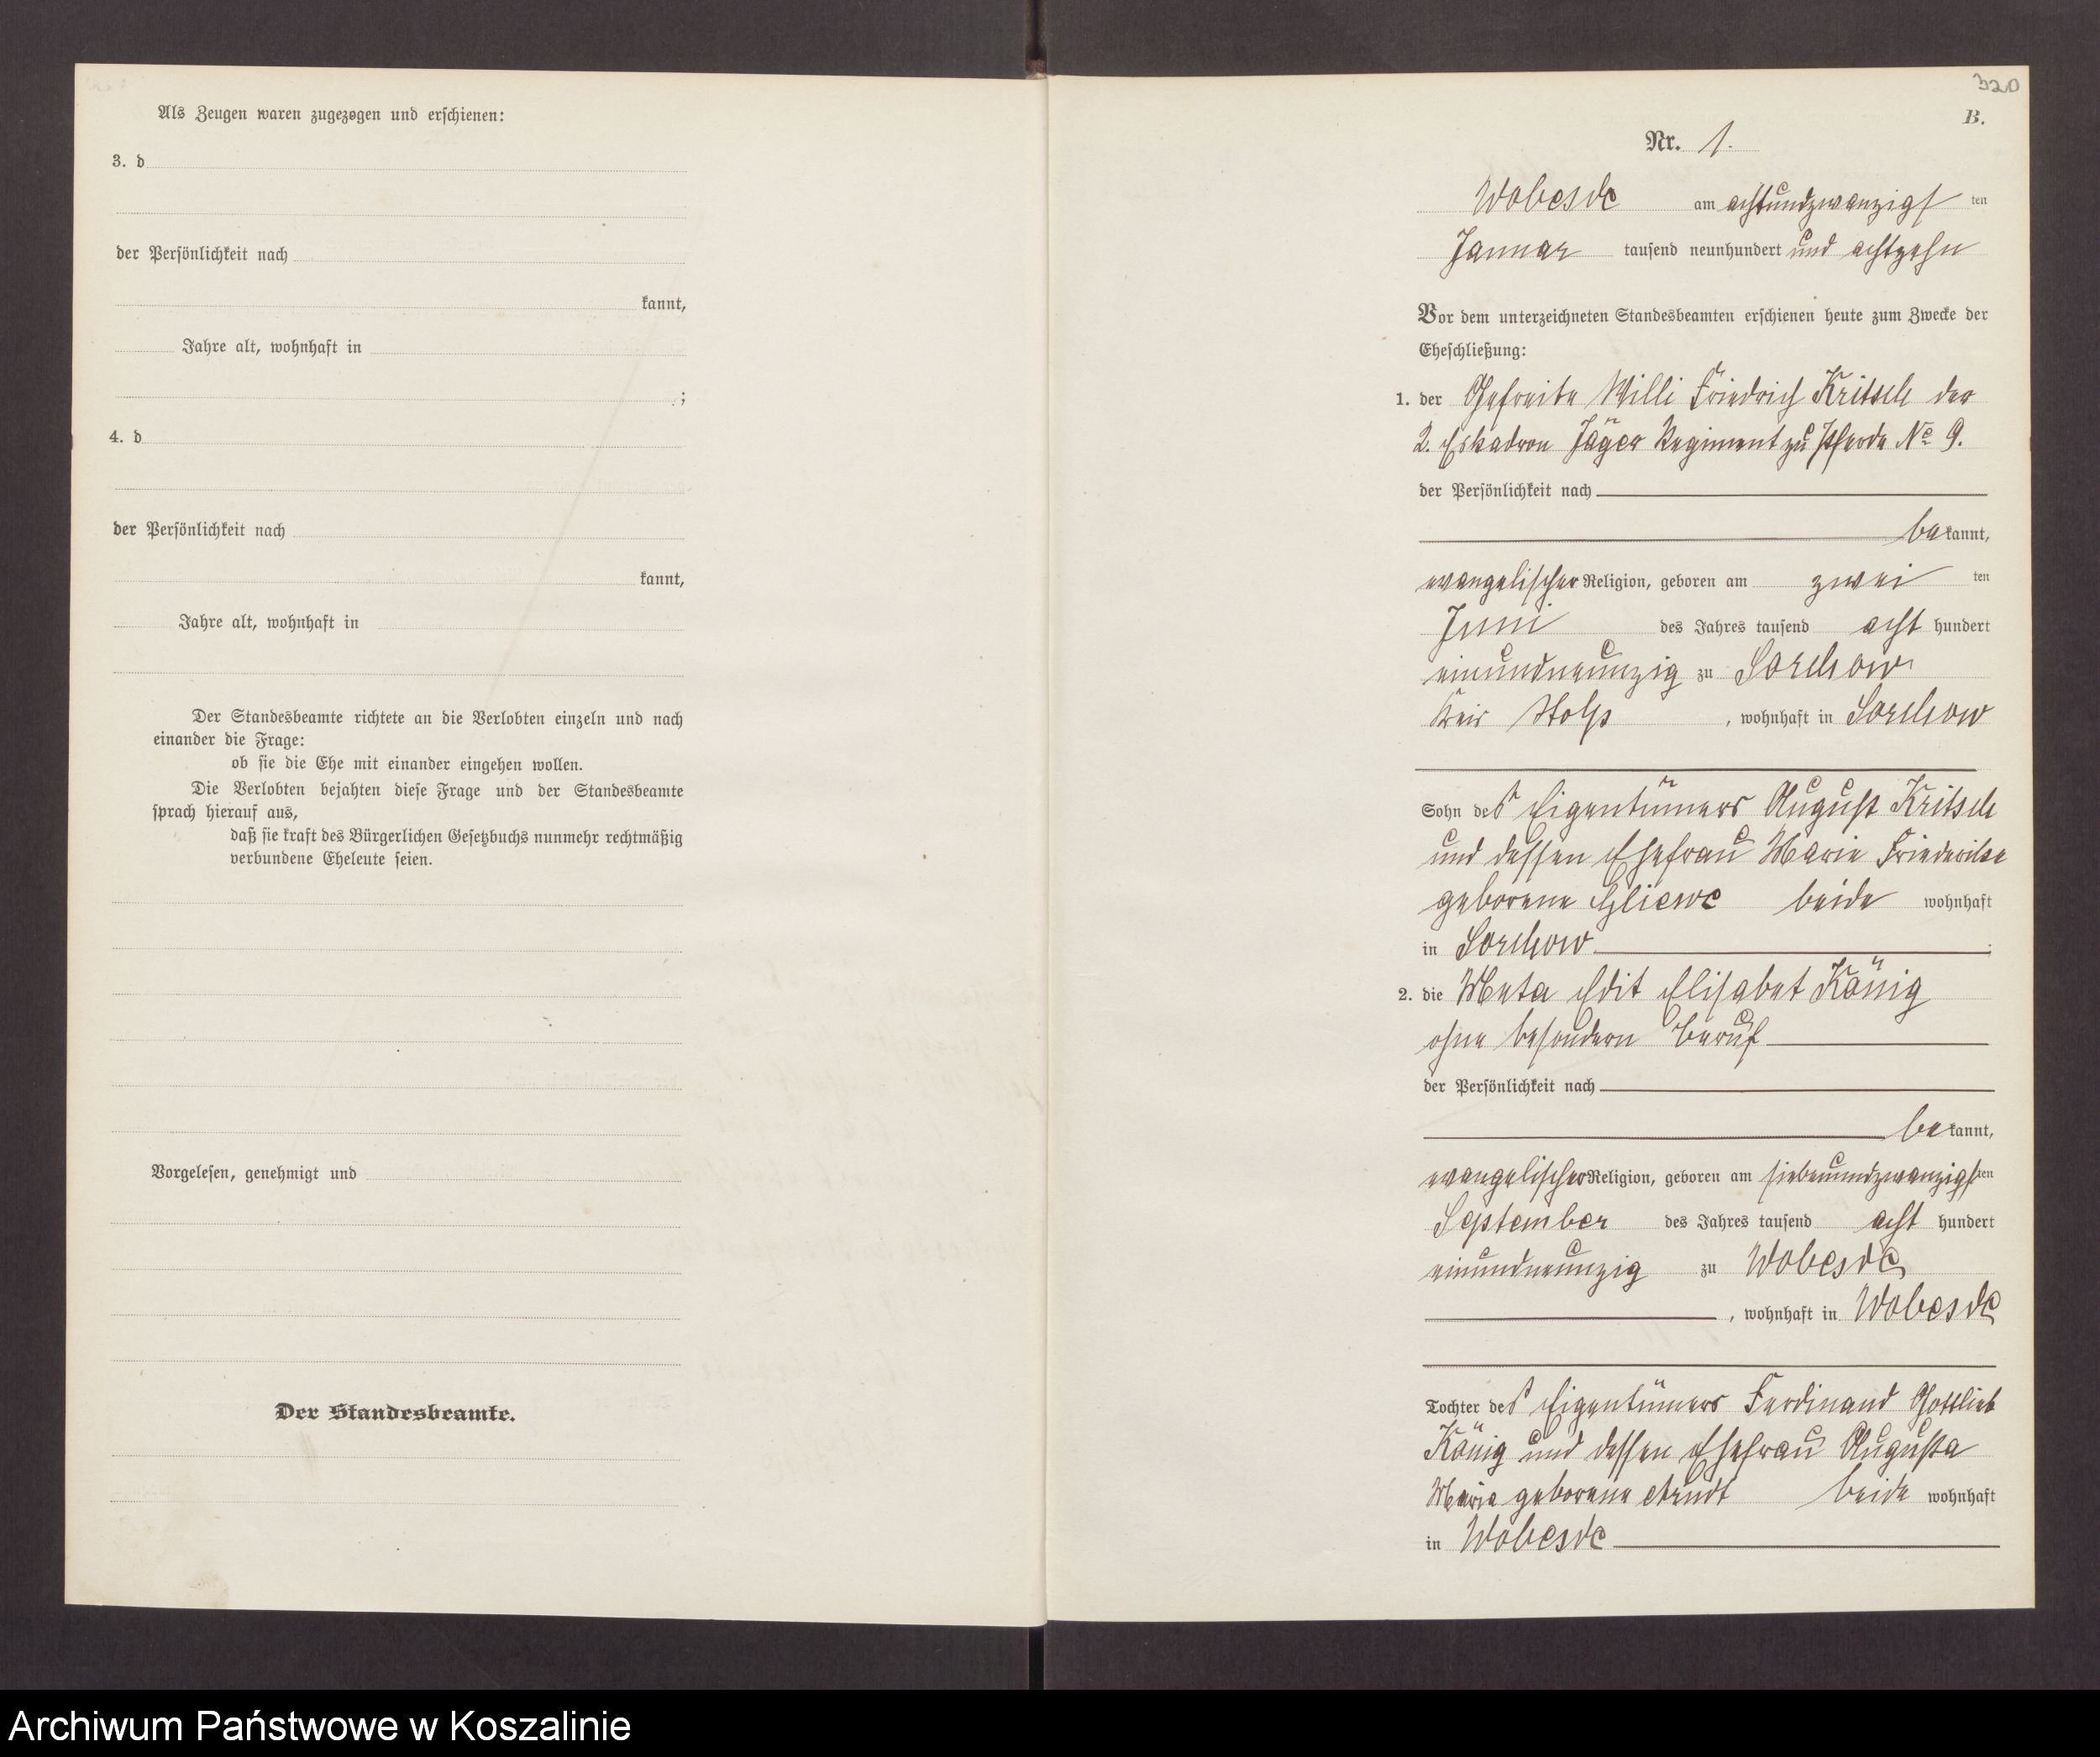 Als Zeugen waren zugezogen und erschienen:
3. d
der Persönlichkeit nach
kannt,
Jahre alt, wohnhaft in
;
4. d
der Persönlichkeit nach
kannt,
Jahre alt, wohnhaft in
Der Standesbeamte richtete an die Verlobten einzeln und nach
einander die Frage:
ob sie die Ehe mit einander eingehen wollen.
Die Verlobten bejahten diese Frage und der Standesbeamte
sprach hierauf aus,
daß sie kraft des Bürgerlichen Gesetzbuchs nunmehr rechtmäßig
verbundene Eheleute seien.
Vorgelesen, genehmigt und
Der Standesbeamte.
320
B.
Nr. 1.
Wobesde am achtundzwanzigsten
Januar tausend neunhundert und achtzehn
Vor dem unterzeichneten Standesbeamten erschienen heute zum Zwecke der
Eheschließung:
1. der Gefreite Willi Friedrich Kritsch der
2. Eskadron Jäger Regiment zu Pferde No 9.
der Persönlichkeit nach
bekannt,
evangelischer Religion, geboren am zweiten
Juni des Jahres tausend acht hundert
einundneunzig zu Sorchow
Kreis Stolp, wohnhaft in Sorchow
Sohn des Eigentümers August Kritsch
und dessen Ehefrau Marie Friederike
geborene Gliewe beide wohnhaft
in Sorchow.
2. die Meta Edit Elisabet König
ohne besondern Beruf
der Persönlichkeit nach
bekannt,
evangelischer Religion, geboren am siebenundzwanzigsten
September des Jahres tausend acht hundert
einundneunzig zu Wobesde,
, wohnhaft in Wobesde
Tochter des Eigentümers Ferdinand Gottlieb
König und dessen Ehefrau Augusta
Marie geborene Arndt beide wohnhaft
in Wobesde
Archiwum Państwowe w Koszalinie